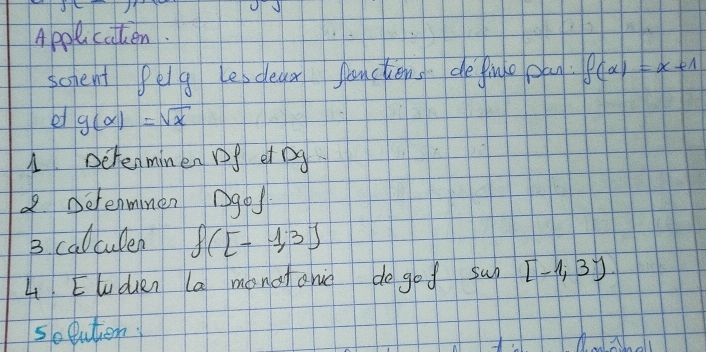 Application.
soient f et g les deux fonctions définie par: f(x) = x+1
et g(x) = √x
1. Déterminer Df et Dg.
2. Déterminer Dgof.
3. calculer f([-1,3]
4. Etudier la monotonie de gof sur [-1,3].
solution: